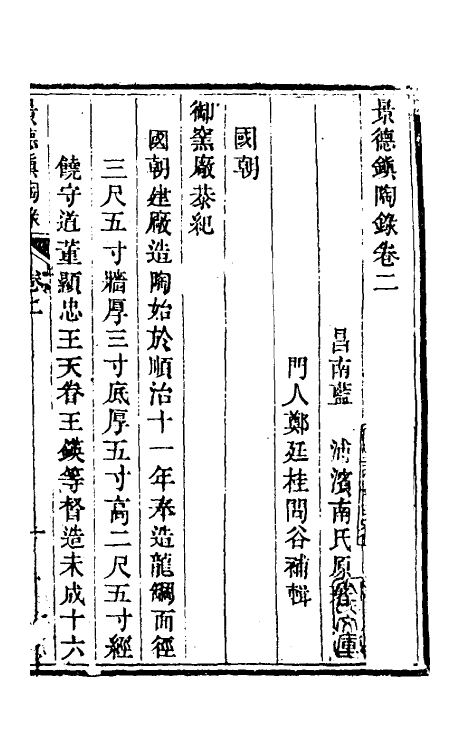 景德鎮陶錄卷二
昌南藍 浦濱南氏原著
門人鄭廷桂問谷補輯
國朝
御窯廠恭紀
國朝建廠造陶始於順治十一年奉造龍缸面徑
三尺五寸牆厚三寸底厚五寸高二尺五寸經
饒守道董顯忠王天眷王鍈等督造未成十六
景德鎮陶錄 卷二